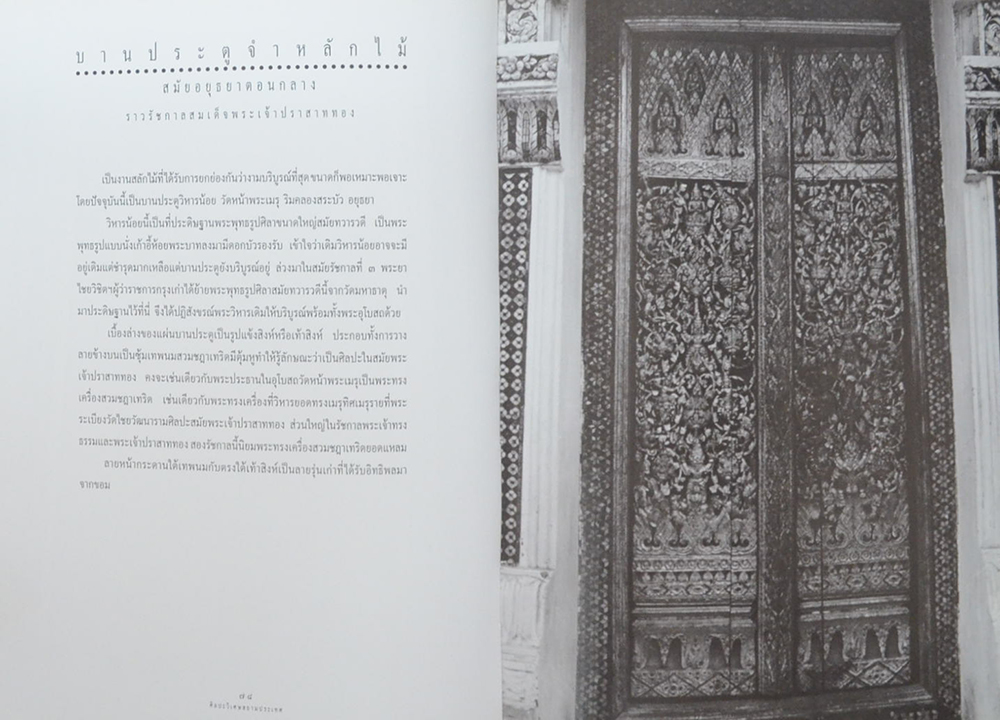 บานประตูจำหลักไม้
สมัยอยุธยาตอนกลาง
ราวรัชกาลสมเด็จพระเจ้าปราสาททอง
เป็นงานสลักไม้ที่ได้รับการยกย่องกันว่างามบริบูรณ์ที่สุด ขนาดก็พอเหมาะพอเจาะ
โดยปัจจุบันนี้เป็นบานประตูวิหารน้อย วัดหน้าพระเมรุ ริมคลองสระบัว อยุธยา
วิหารน้อยนี้เป็นที่ประดิษฐานพระพุทธรูปศิลาขนาดใหญ่สมัยทวารวดี เป็นพระ
พุทธรูปแบบนั่งเก้าอี้ห้อยพระบาทลงมามีดอกบัวรองรับ เข้าใจว่าเดิมวิหารน้อยอาจจะมี
อยู่เดิมแต่ชำรุดมากเหลือแต่บานประตูยังบริบูรณ์อยู่ ล่วงมาในสมัยรัชกาลที่ ๓ พระยา
ไชยวิชิตฯผู้ว่าราชการกรุงเก่าได้ย้ายพระพุทธรูปศิลาสมัยทวารวดีนี้จากวัดมหาธาตุ นำ
มาประดิษฐานไว้ที่นี่ จึงได้ปฏิสังขรณ์พระวิหารเดิมให้บริบูรณ์พร้อมทั้งพระอุโบสถด้วย
เบื้องล่างของแผ่นบานประตูเป็นรูปแข้งสิงห์หรือเท้าสิงห์ ประกอบทั้งการวาง
ลายข้างบนเป็นซุ้มเทพนมสวมชฎาเทริดมีตุ้มหูทำให้รู้ลักษณะว่าเป็นศิลปะในสมัยพระ
เจ้าปราสาททอง คงจะเช่นเดียวกับพระประธานในอุโบสถวัดหน้าพระเมรุเป็นพระทรง
เครื่องสวมชฎาเทริด เช่นเดียวกับพระทรงเครื่องที่วิหารยอดทรงเมรุทิศเมรุรายที่พระ
ระเบียงวัดไชยวัฒนารามศิลปะสมัยพระเจ้าปราสาททอง ส่วนใหญ่ในรัชกาลพระเจ้าทรง
ธรรมและพระเจ้าปราสาททอง สองรัชกาลนี้นิยมพระทรงเครื่องสวมชฎาเทริดยอดแหลม
ลายหน้ากระดานใต้เทพนมกับตรงใต้เท้าสิงห์เป็นลายรุ่นเก่าที่ได้รับอิทธิพลมา
จากขอม
๗๘
ศิลปะวิเศษสยามประเทศ